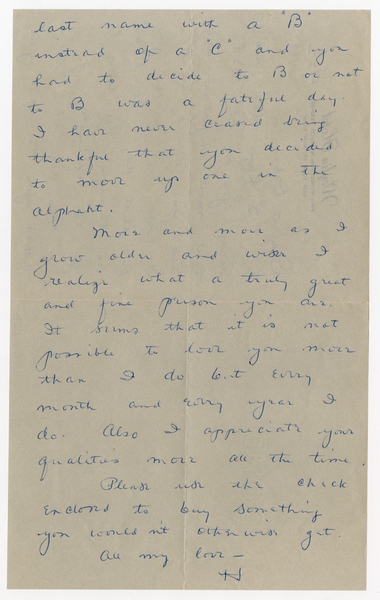 last name with a "B"
instead of a "C" and you
had to decide to B or not
to B was a fateful day.
I have never ceased being
thankful that you decided
to move up one in the
alphabet.
More and more as I
grow older and wiser I
realize what a truly great
and fine person you are.
It seems that it is not
possible to love you more
than I do but every
month and every year I
do. Also I appreciate your
qualities more all the time.
Please use the check
enclosed to buy something
you wouldn't otherwise get.
All my love –
H